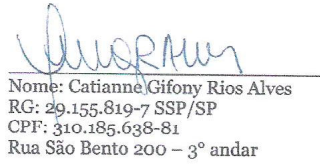 Nome: Catianne Gifony Rios Alves
RG: 29.155.819-7 SSP/SP
CPF: 310.185.638-81
Rua São Bento 200 – 3º andar